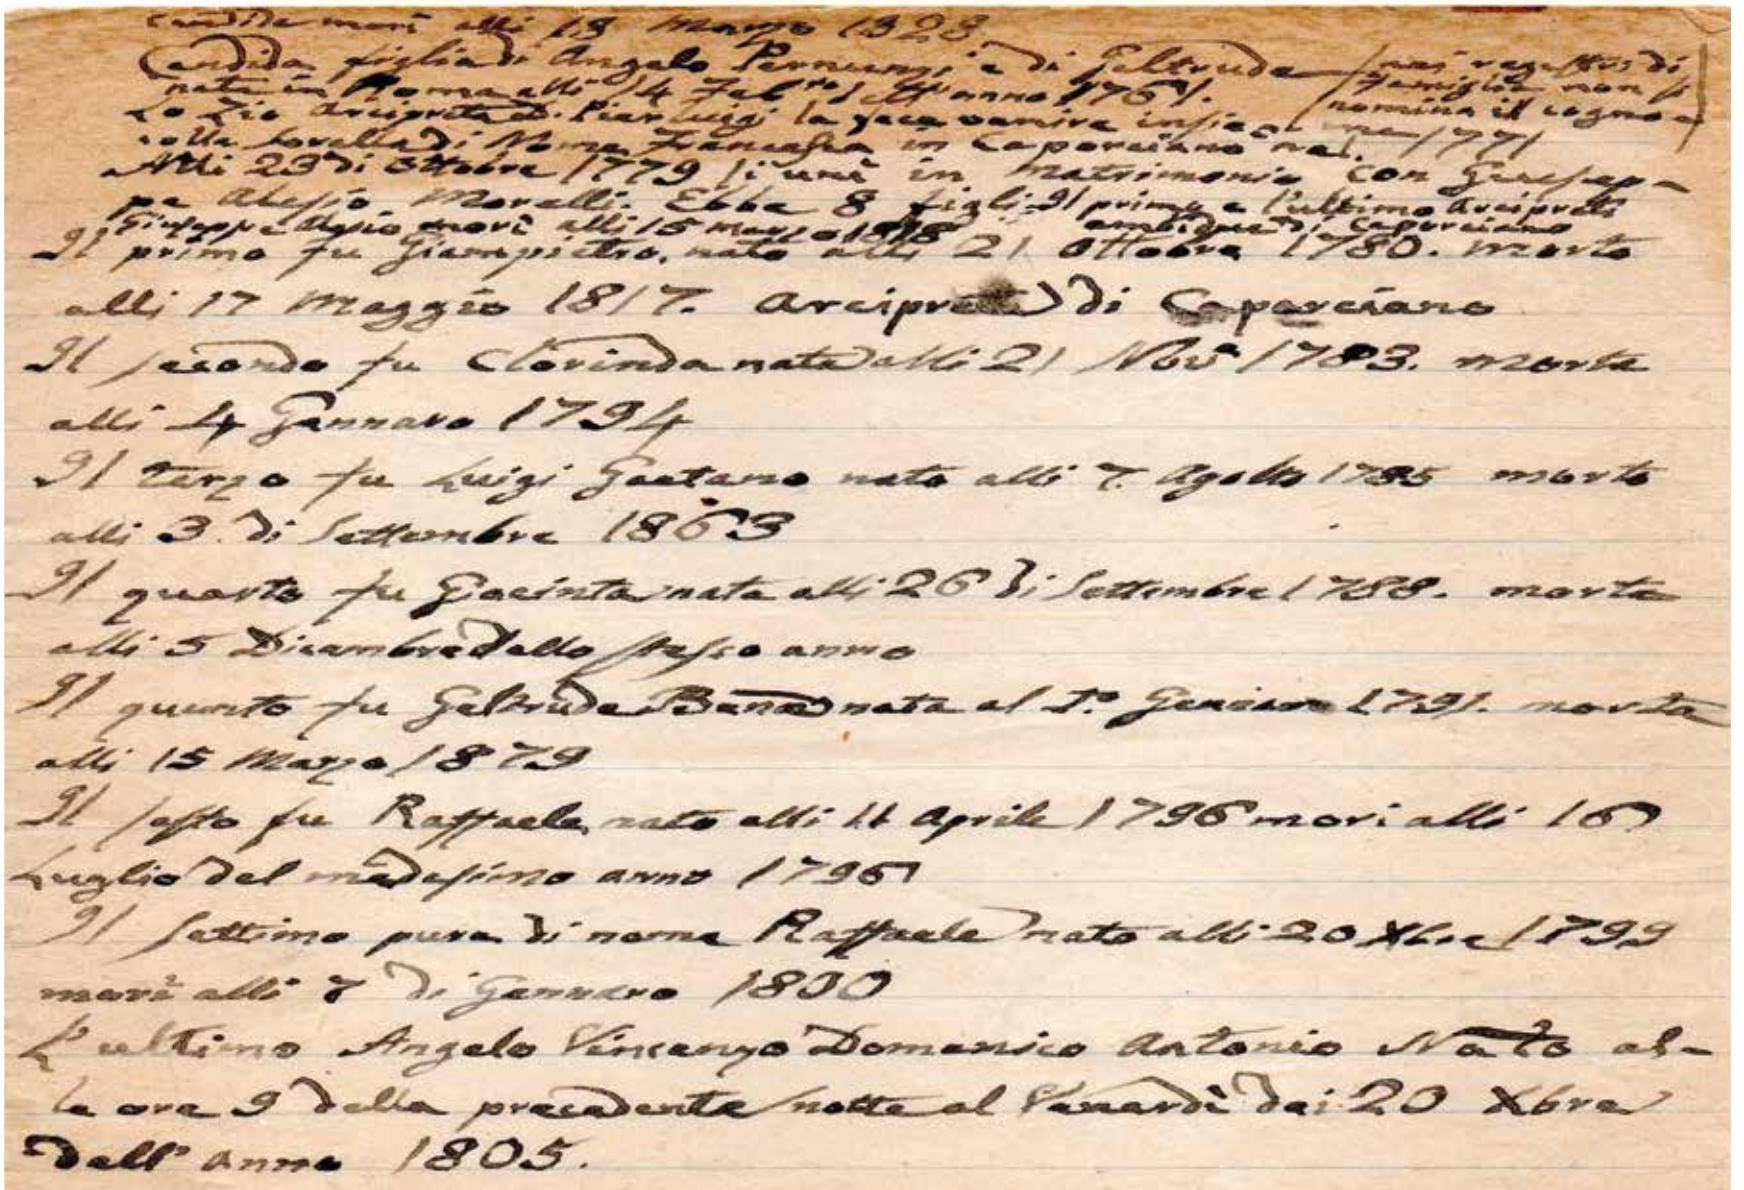 Candida morì alli 18 Marzo 1828
Candida figlia di Angelo e di Geltrude (nei registri di
nata in Roma alli 14 Feb. dell'anno 1761. famiglia non si
Lo Zio Arciprete D. Pierluigi la fece venire insieme nomina il cogno e)
colla sorella di Nome Francesca in Caporciano nel 1771
Alli 23 di Ottobre 1779 si unì in matrimonio con Giusep-
pe Alessio Morelli. Ebbe 8 figli. Il primo e l'ultimo Arcipreti
Giuseppe Alessio morì alli 15 Marzo ambidue di Caporciano
Il primo fu Giampietro, nato alli 21 Ottobre 1780. morto
alli 17 Maggio 1817. Arciprete di Caporciano
Il secondo fu Clorinda nata alli 21 Nov. 1783. morta
alli 4 Gennaro 1794
Il terzo fu Luigi Gaetano nato alli 7. Agosto 1785 morto
alli 3. di Settembre 1863
Il quarto fu Giacinta nata alli 26 di Settembre 1788. morta
alli 5 Dicembre dello stesso anno
Il quinto fu Geltrude nata al 1º. 1791. morta
alli 15 Marzo 1879
Il sesto fu Raffaele nato alli 11 Aprile 1796 morì alli 16
Luglio del medesimo anno 1796
Il settimo pure di nome Raffaele nato alli 20 Xbre 1799
morì alli 7 di Gennaro 1800
L'ultimo Angelo Vincenzo Domenico Antonio Nato al-
le ore 9 della precedente notte al Venerdì dei 20 Xbre
dell'anno 1805.